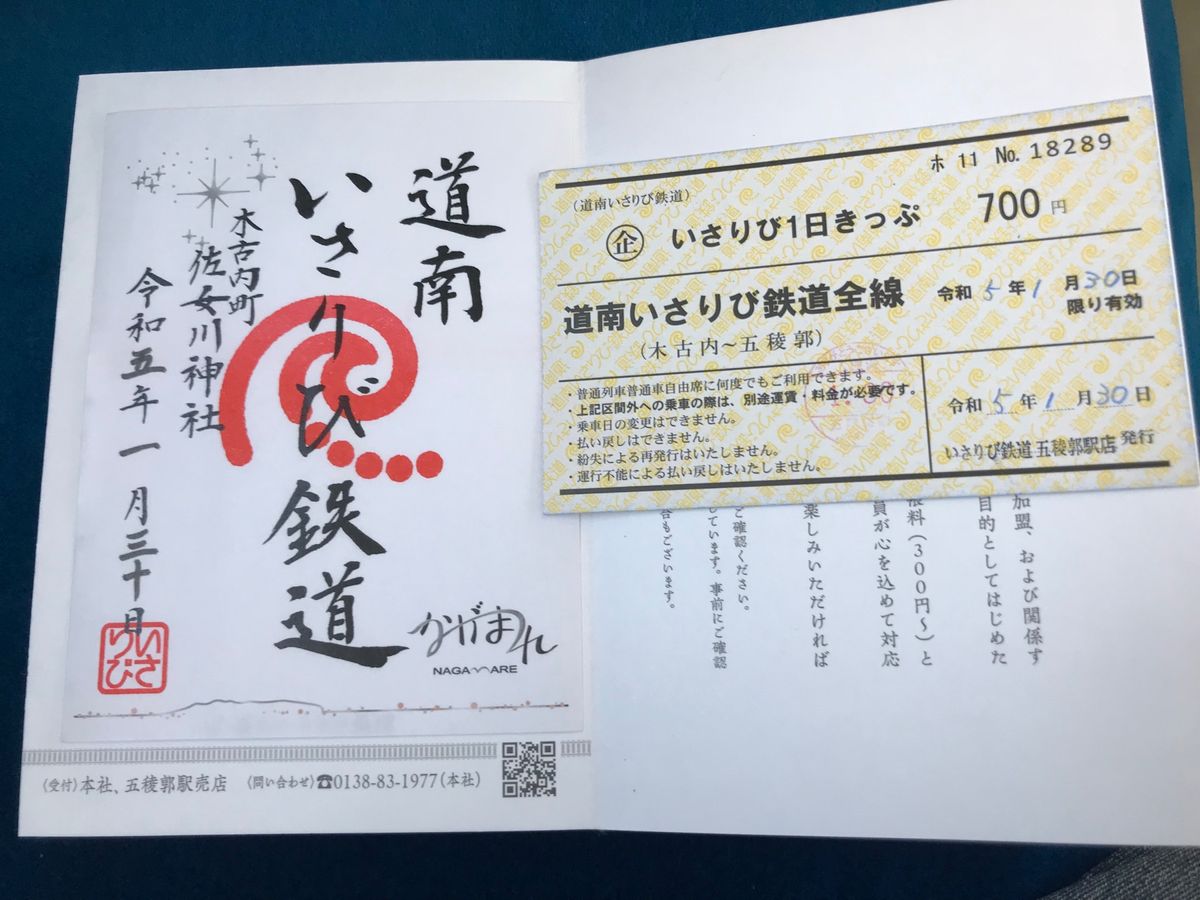 道南
いさりび鉄道
木古内町
佐女川神社
令和五年一月三十日
いさ
りび
ながまれ
NAGAMARE
〈受付〉本社、五稜郭駅売店 〈問い合わせ〉☎0138-83-1977(本社)
ホ 11 No. 18289
(道南いさりび鉄道)
企 いさりび1日きっぷ 700円
道南いさりび鉄道全線
(木古内~五稜郭)
令和 5 年 1 月 30 日
限り有効
・普通列車普通車自由席に何度でもご利用できます。
・上記区間外への乗車の際は、別途運賃・料金が必要です。
・乗車日の変更はできません。
・払い戻しはできません。
・紛失による再発行はいたしません。
・運行不能による払い戻しはいたしません。
令和 5 年 1 月 30 日
いさりび鉄道 五稜郭駅店 発行
加盟、および関係す
目的としてはじめた
料(300円~)と
員が心を込めて対応
楽しみいただければ
ご確認ください。
しています。事前にご確認
合もございます。